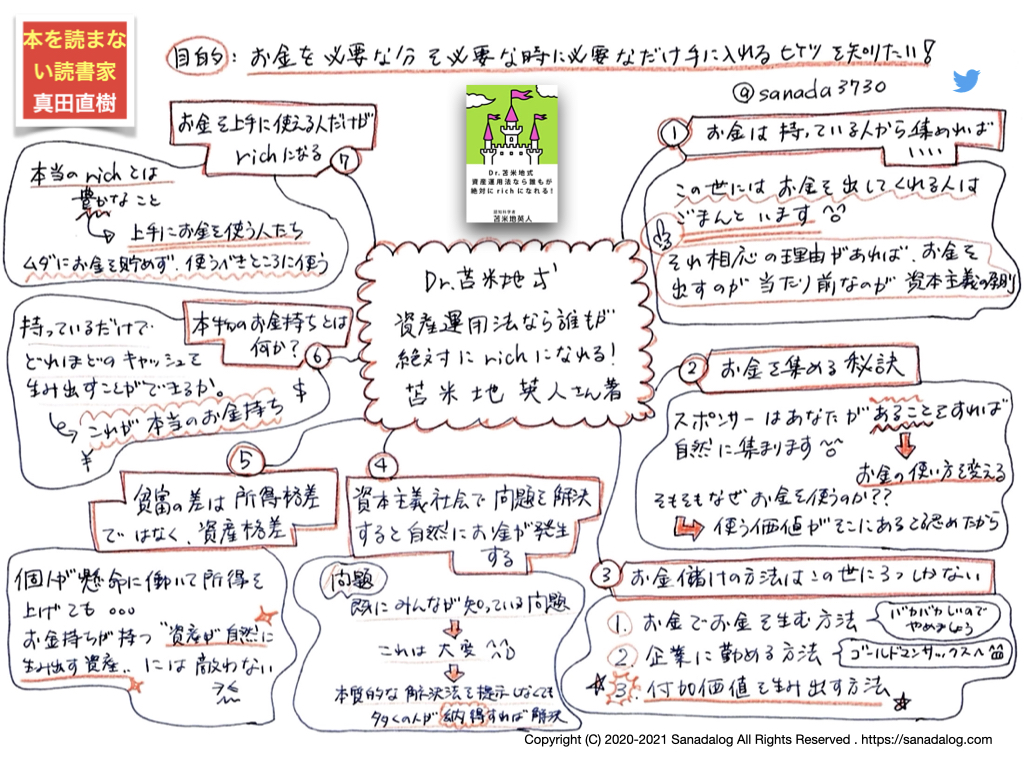 本を読まな
い読書家
真田直樹
目的：お金を必要な分を必要な時に必要なだけ手に入れるヒケツを知りたい！
@sanada3730
Dr.苫米地式
資産運用法なら誰もが
絶対にrichになれる！
認知科学者
苫米地英人
Dr.苫米地式
資産運用法なら誰もが
絶対にrichになれる！
苫米地 英人さん著
① お金は持っている人から集めれば
いい
この世にはお金を出してくれる人は
ごまんといます
それ相応の理由があれば、お金を
出すのが当たり前なのが資本主義の原則
② お金を集める秘訣
スポンサーはあなたがあることをすれば
自然に集まります
お金の使い方を変える
そもそもなぜお金を使うのか??
使う価値がそこにあると認めたから
③ お金儲けの方法はこの世に3つしかない
1. お金でお金を生む方法
バカバカしいので
やめましょう
2. 企業に勤める方法
ゴールドマンサックスへ
3. 付加価値を生み出す方法
④ 資本主義社会で問題を解決
すると自然にお金が発生
する
問題
既にみんなが知っている問題
これは大変
本質的な解決法を提示しなくても
多くの人が納得すれば解決
⑤
貧富の差は所得格差
ではなく、資産格差
個人が懸命に働いて所得を
上げても ...
お金持ちが持つ“資産が自然に
生み出す資産”には敵わない
本物のお金持ちとは
何か？ ⑥
持っているだけで
どれほどのキャッシュを
生み出すことができるか。
これが本当のお金持ち
$
¥
お金を上手に使える人だけが
richになる ⑦
本当のrichとは
豊かなこと
上手にお金を使う人たち
ムダにお金を貯めず、使うべきところに使う
Copyright (C) 2020-2021 Sanadalog All Rights Reserved . https://sanadalog.com